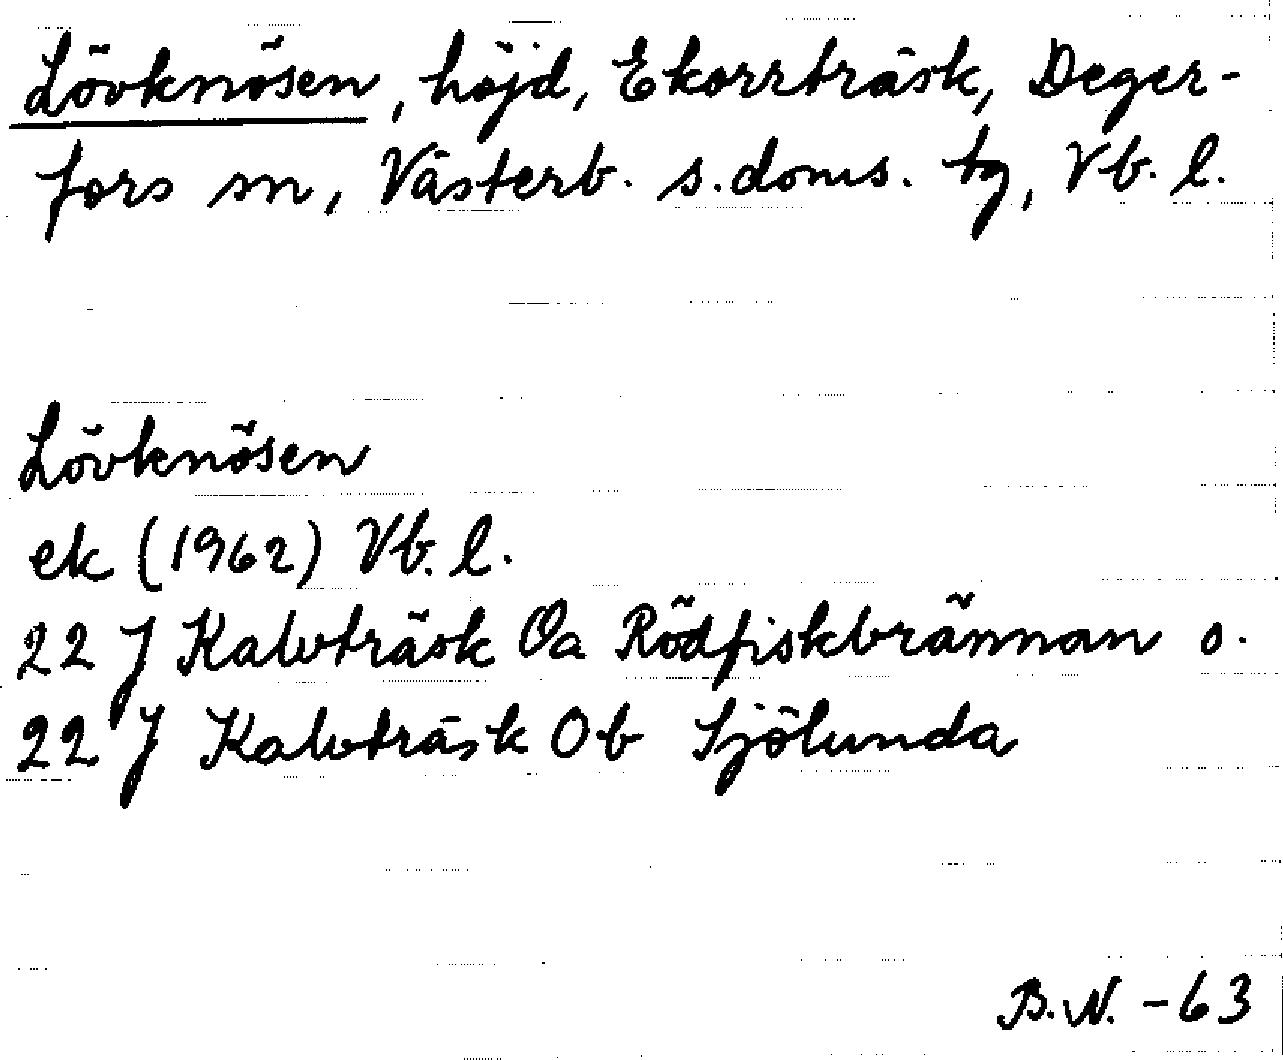 Lövknösen, höjd, Ekorrträsk, Deger-
fors sn, Västerb. s. doms. tg, Vb. l.
Lövknösen
ek (1962) Vb. l.
22 J Kalvträsk Oa Rödfiskbrännan o.
22 J Kalvträsk Ob Sjölunda
B.N. -63